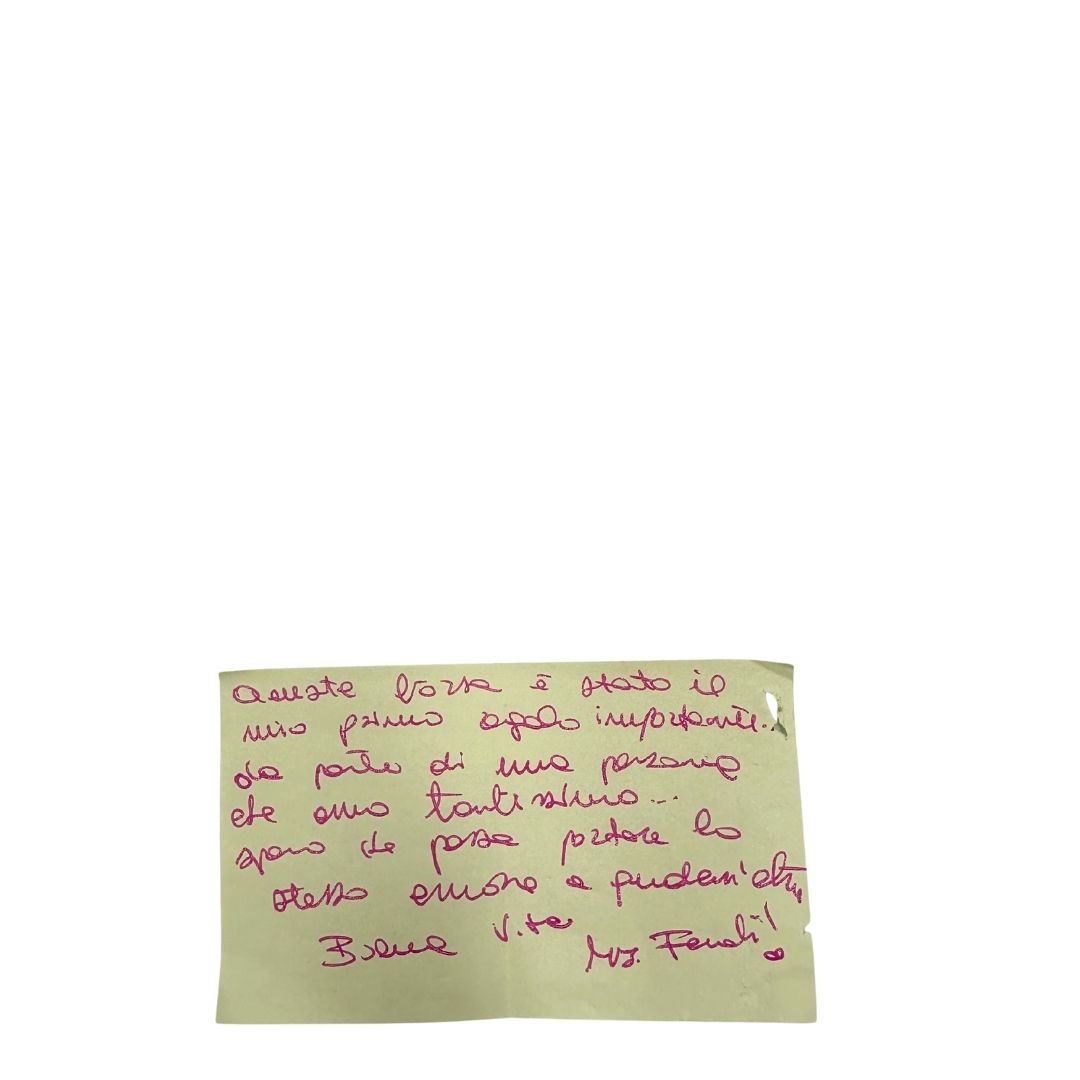 Questa borsa è stato il
mio primo regalo importante...
da parte di una persona
che amo tantissimo...
spero che possa portare lo
stesso amore a qualcun'altra
Buona vita Mrs. Fendi!